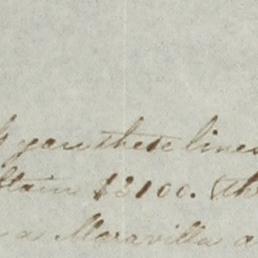 you these lines
$3100. th
a Maravilla a